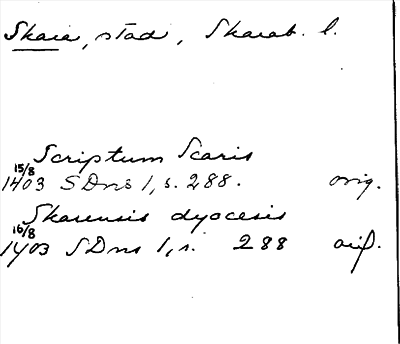 Skara, stad, Skarab. l.
Scriptum Scaris
15/8 1403 SDns 1, s. 288. orig.
Skarensis dyocesis
16/8 1403 SDns 1, s. 288 orig.